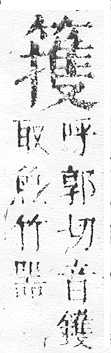 篗
呼郭切音鑊
取魚竹器